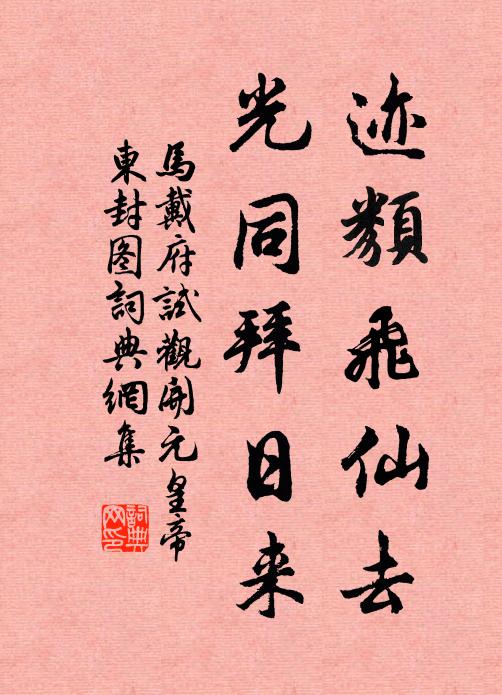 迹類飛仙去
光同拜日来
馬戴府試觀開元皇帝
東封图詞典網集
詞典网印